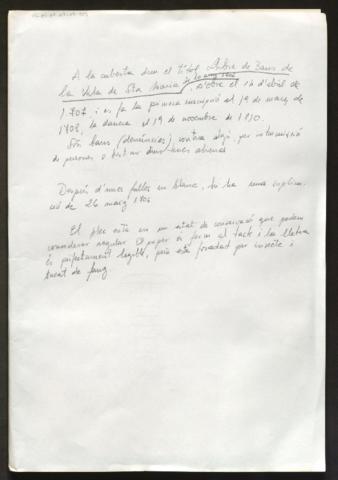 A la coberta duu el títol Llibre de Bans de
la Vila de Sta Maria de lo any 1706. S'obre el 14 d'abril de
1.707 i es fa la primera inscripció al 19 de març de
1708, la darrera el 19 de novembre de 1.710.
Són bans (denúncies) contra algú, per intromissió
de persones o bestiar dins terres alienes
Després d'unes fulles en blanc, hi ha una súplica
de 26 març 1706
El plec està en un estat de conservació que podem
considerar regular. El paper és ferm al tacte i la lletra
és perfectament llegible, però està foradat per insecte i
tacat de fang.